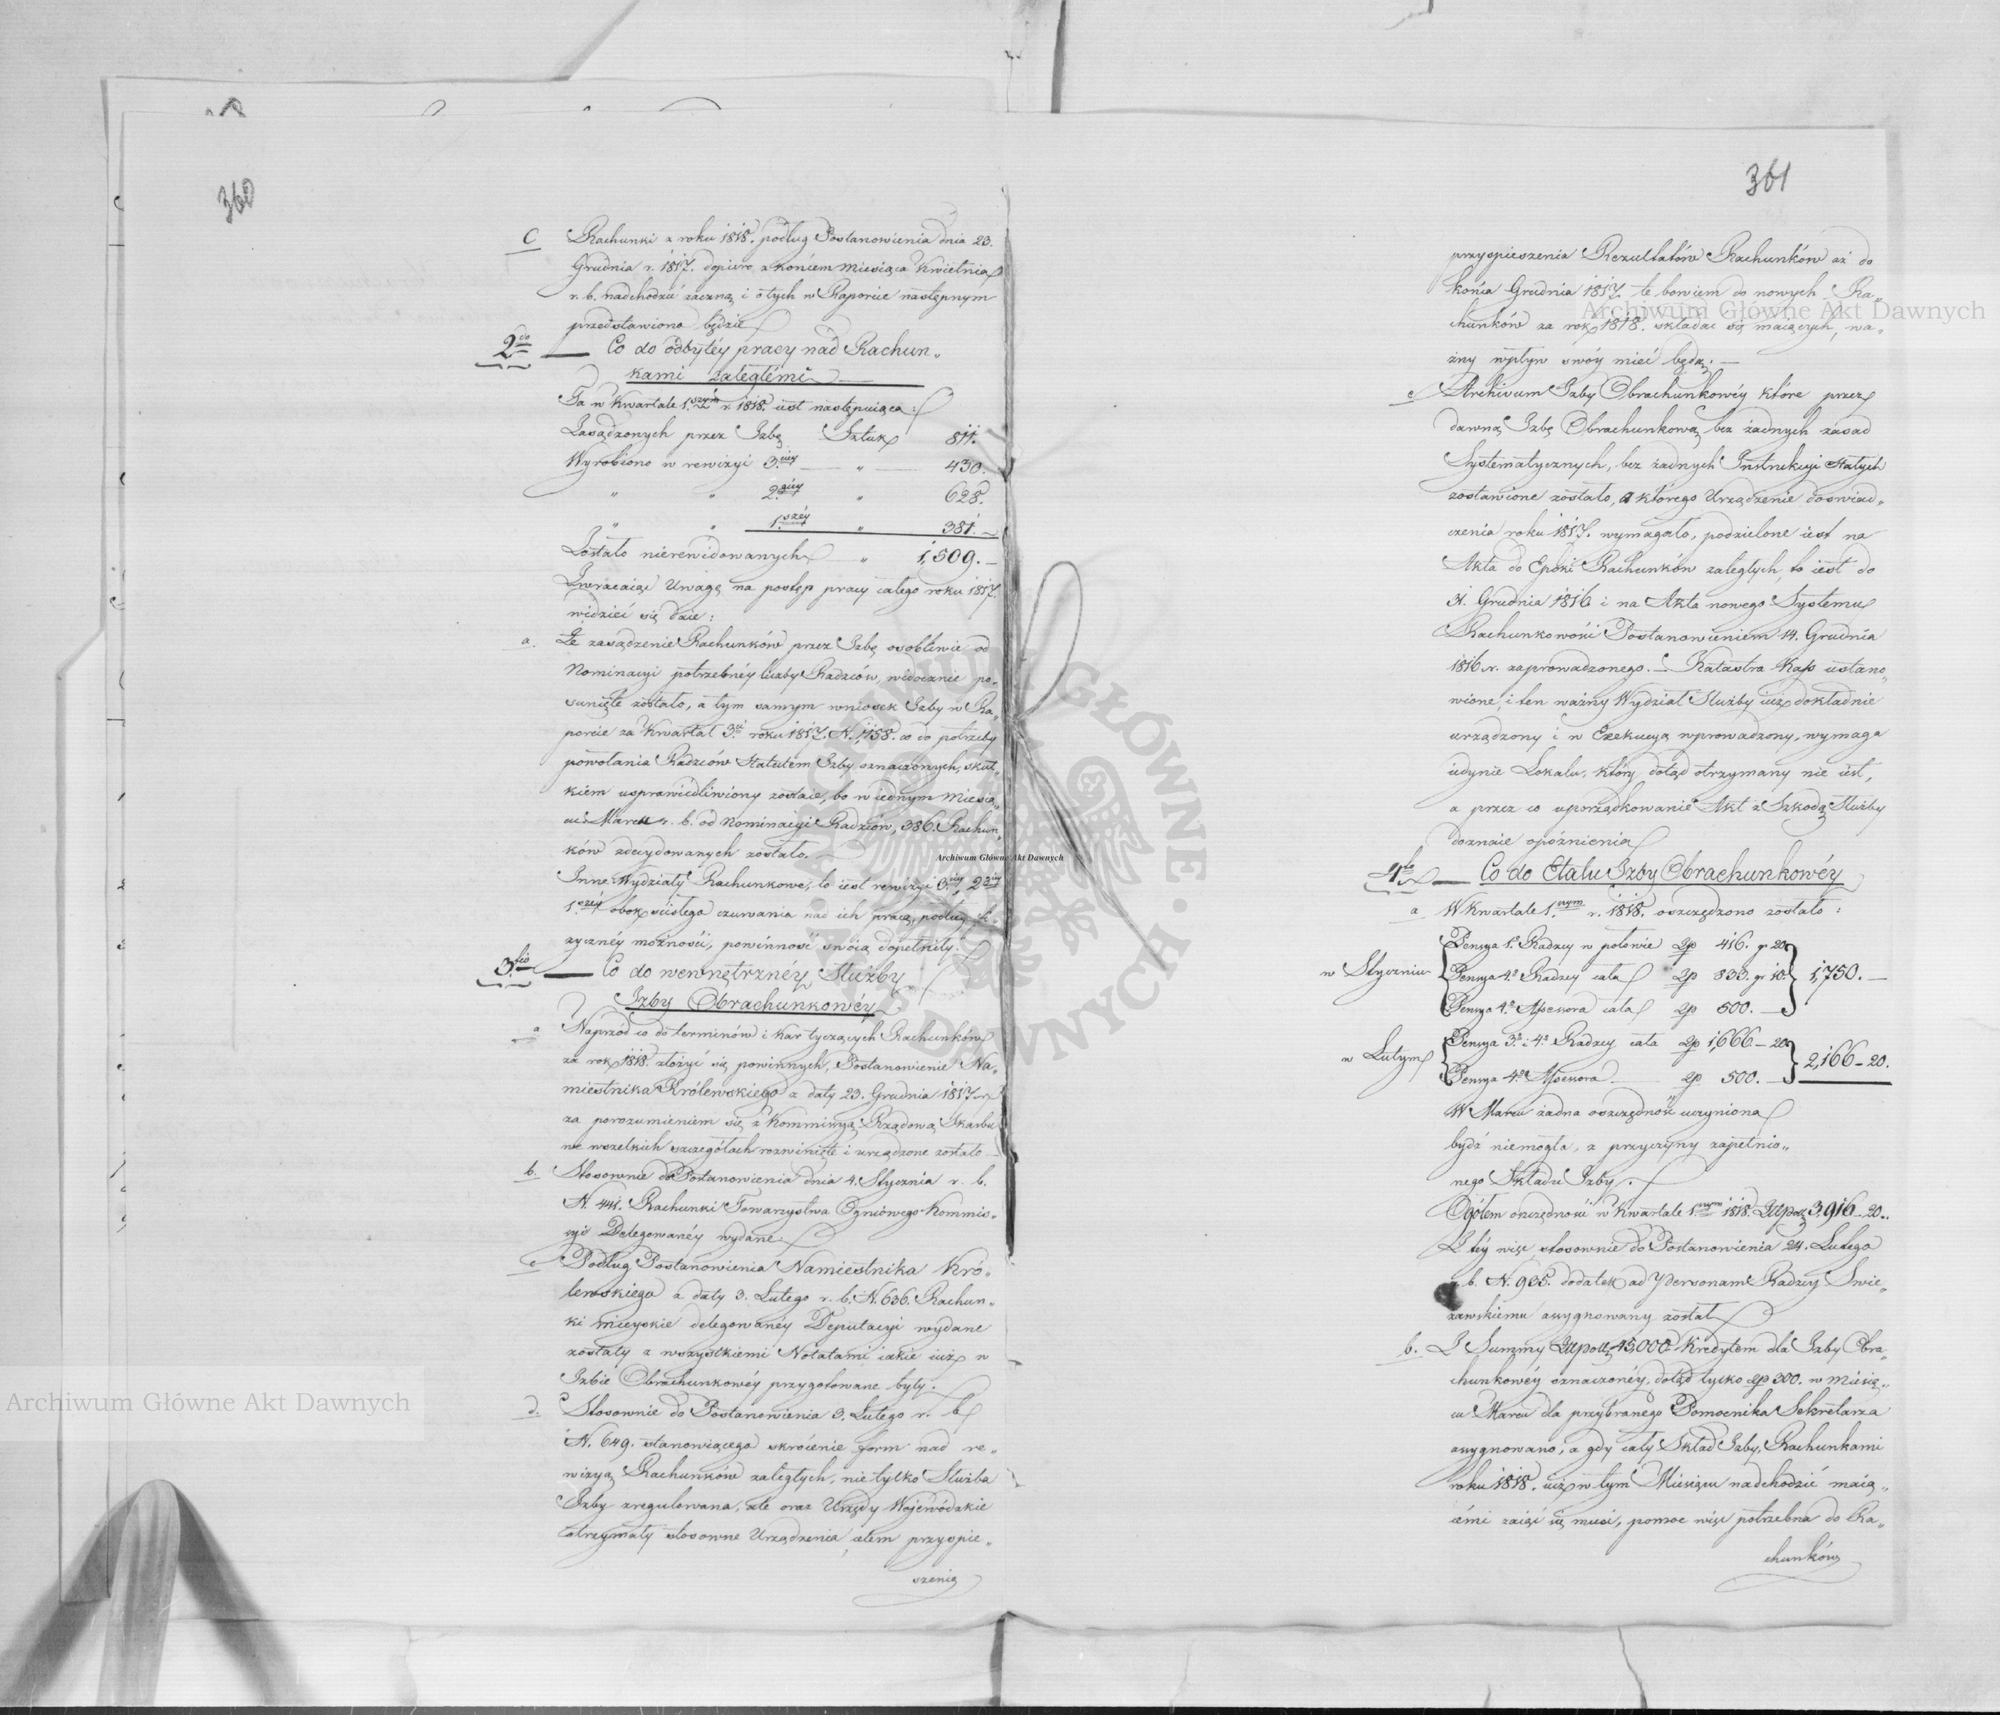 360
C Rachunki z roku 1818. podług Postanowienia dnia 23.
Grudnia r. 1817. dopiero z końcem Miesiąca Kwietnia
r. b. nadchodzić zaczną i o tych w Raporcie następnym
przedstawiono będzie
2do Co do odbytéy pracy nad Rachun„
kami zaległémi
Ta w Kwartale 1.szym r. 1818. iest następuiąca:
Zasądzonych przez Izbę Sztuk 811.
Wyrobiono w rewizyi 3.ciey „ 430.
„ „ 2.giéy „ 628.
„ „ 1.széy „ 381.
Zostało nierewidowanych „ 1,509.
Zwracaiąc Uwagę na postęp pracy całego roku 1817.
widzieć się daie:
a. Że zasądzenie Rachunków przez Izbę osobliwie od
Nominacyi potrzebnéy liczby Radzców, widocznie po„
sunięte zostało, a tym samym wniosek Izby w Ra„
porcie za Kwartał 3.ci roku 1817. N. 1,158. co do potrzeby
powołania Radzców Statutem Izby oznaczonych, skut„
kiem usprawiedliwiony zostaie, bo w iednym Miesią„
cu Marcu r. b. od Nominacyi Radzców, 386. Rachun„
ków zdecydowanych zostało.
Inne Wydziały Rachunkowe, to iest rewizyi 3.ciey, 2.giey
1.széy obok ścisłego czuwania nad ich pracą, podług fi„
zycznéy możności, powinność swoią dopełniły.
3.tio Co do wewnętrznéy Służby
Izby Obrachunkowéy
a Naprzód co do terminów i kar tyczących Rachunków
za rok 1818. złożyć się powinnych, Postanowienie Na„
miestnika Królewskiego z daty 23. Grudnia 1817. r.
za porozumieniem się z Kommissyą Rządową Skarbu
we wszelkich szczegółach rozwinięte i urządzone zostało
b. Stosownie do Postanowienia dnia 4. Stycznia r. b.
N. 441. Rachunki Towarzystwa Ogniowego Kommis„
syi Delegowanéy wydane
c Podług Postanowienia Namiestnika Kró„
lewskiego z daty 3. Lutego r. b. N. 636. Rachun„
ki mieyskie delegowanéy Deputacyi wydane
zostały z wszystkiemi Notatami iakie iuż w
Izbie Obrachunkowéy przygotowane były.
d. Stosownie do Postanowienia 3. Lutego r. b.
N. 649. stanowiącego skrócenie form nad re„
wizyą Rachunków zaległych, nie tylko Służba
Izby zregulowana, ale oraz Urzędy Wojewódzkie
otrzymały stosowne Urządzenia, celem przyspie„
szenia
361
przyspieszenia Rezultatów Rachunków aż do
końca Grudnia 1817. te bowiem do nowych Ra„
chunków za rok 1818. składać się maiących, wa„
żny wpływ swóy mieć będą.
e Archivum Izby Obrachunkowéy które przez
dawną Izbę Obrachunkową bez żadnych zasad
Systematycznych, bez żadnych Instrukcyi stałych
zostawione zostało, a którego Urządzenie doświad„
czenia roku 1817. wymagało, podzielone iest na
Akta do Epoki Rachunków zaległych, to iest do
31. Grudnia 1816 i na Akta nowego Systemu
Rachunkowości Postanowieniem 14. Grudnia
1816 r. zaprowadzonego. Katastra Kass ustano„
wione, i ten ważny Wydział Służby iuż dokładnie
urządzony i w Exekucyą wprowadzony, wymaga
iedynie Lokalu, który dotąd otrzymany nie iest,
a przez co uporządkowanie Akt z Szkodą Służby
doznaie opóźnienia
4.to Co do Etatu Izby Obrachunkowéy
a W Kwartale 1.szym r. 1818. oszczędzono zostało:
w Styczniu Pensya 1.o Radzcy w połowie Zp 416. gr 20.
Pensya 4.o Radzcy cała Zp 833. gr 10. 1,750.
Pensya 4.o Assessora cała Zp 500.
w Lutym Pensya 3.o i 4.o Radzcy cała Zp 1,666 – 20. 2,166 – 20.
Pensya 4.o Assessora Zp 500.
W Marcu żadna oszczędność uczyniona
bydź niemogła, z przyczyny zapełnio„
nego Składu Izby.
Ogółem oszczędności w Kwartale 1.szym 1818. Złpol. 3,916 – 20.
Z téy więc, stosownie do Postanowienia 24. Lutego
b. N. 935. dodatek ad personam Radzcy Świe„
żawskiemu assygnowany został
b. Z Summy Złpol. 45,000 Kredytem dla Izby Obra„
chunkowéy oznaczonéy, dotąd tylko Zp 300. w Miesią„
cu Marcu dla przybranego Pomocnika Sekretarza
assygnowano, a gdy cały Skład Izby, Rachunkami
roku 1818. iuż w tym Miesiącu nadchodzić maią„
cémi zaiąć się musi, pomoc więc potrzebna do Ra„
chunków
Archiwum Główne Akt Dawnych
Archiwum Główne Akt Dawnych
Archiwum Główne Akt Dawnych
ARCHIWUM GŁÓWNE AKT DAWNYCH